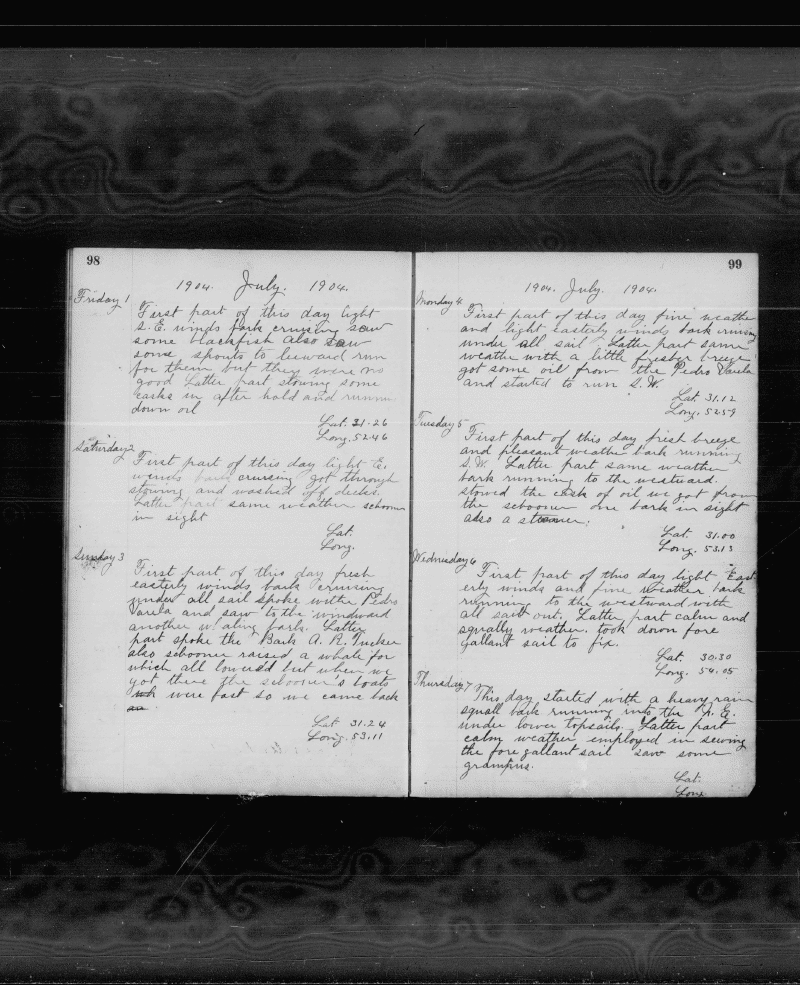 98
1904. July. 1904.
Friday 1
First part of this day light
S.E. winds bark cruising saw
some blackfish also saw
some spouts to leeward run
for them but they were no
good Latter part stowing some
casks in after hold and runnin
down oil
Lat. 31.26
Long. 52.46
Saturday 2
First part of this day light E.
winds bark cruising got through
stowing and washed off decks.
Latter part same weather schooner
in sight
Lat.
Long.
Sunday 3
First part of this day fresh
easterly winds bark cruising
under all sail spoke with Pedro
Varela and saw to the windward
another whaling bark. Latter
part spoke the Bark A. R. Tucker
also schooner raised a whale for
which all lowered but when we
got there the schooner's boats
were fast so we came back
Lat. 31.24
Long. 53.11
99
1904. July. 1904.
Monday 4.
First part of this day fine weathe
and light easterly winds bark cruising
under all sail. Latter part same
weather with a little fresher breeze
got some oil from the Pedro Varela
and started to run S.W.
Lat. 31.12
Long. 52.59
Tuesday 5
First part of this day fresh breeze
and pleasant weather bark running
S.W. Latter part same weather
bark running to the westward.
stowed the cask of oil we got from
the schooner one bark in sight
also a steamer.
Lat. 31.00
Long. 53.13
Wednesday 6
First part of this day light East
erly winds and fine weather bark
running to the westward with
all sail out. Latter part calm and
squally weather. took down fore
gallant sail to fix.
Lat. 30.30
Long. 54.05
Thursday 7
This day started with a heavy rain
squall bark running into the N.E.
under lower topsails. Latter part
calm weather employed in sewing
the fore gallant sail saw some
grampus.
Lat.
Long